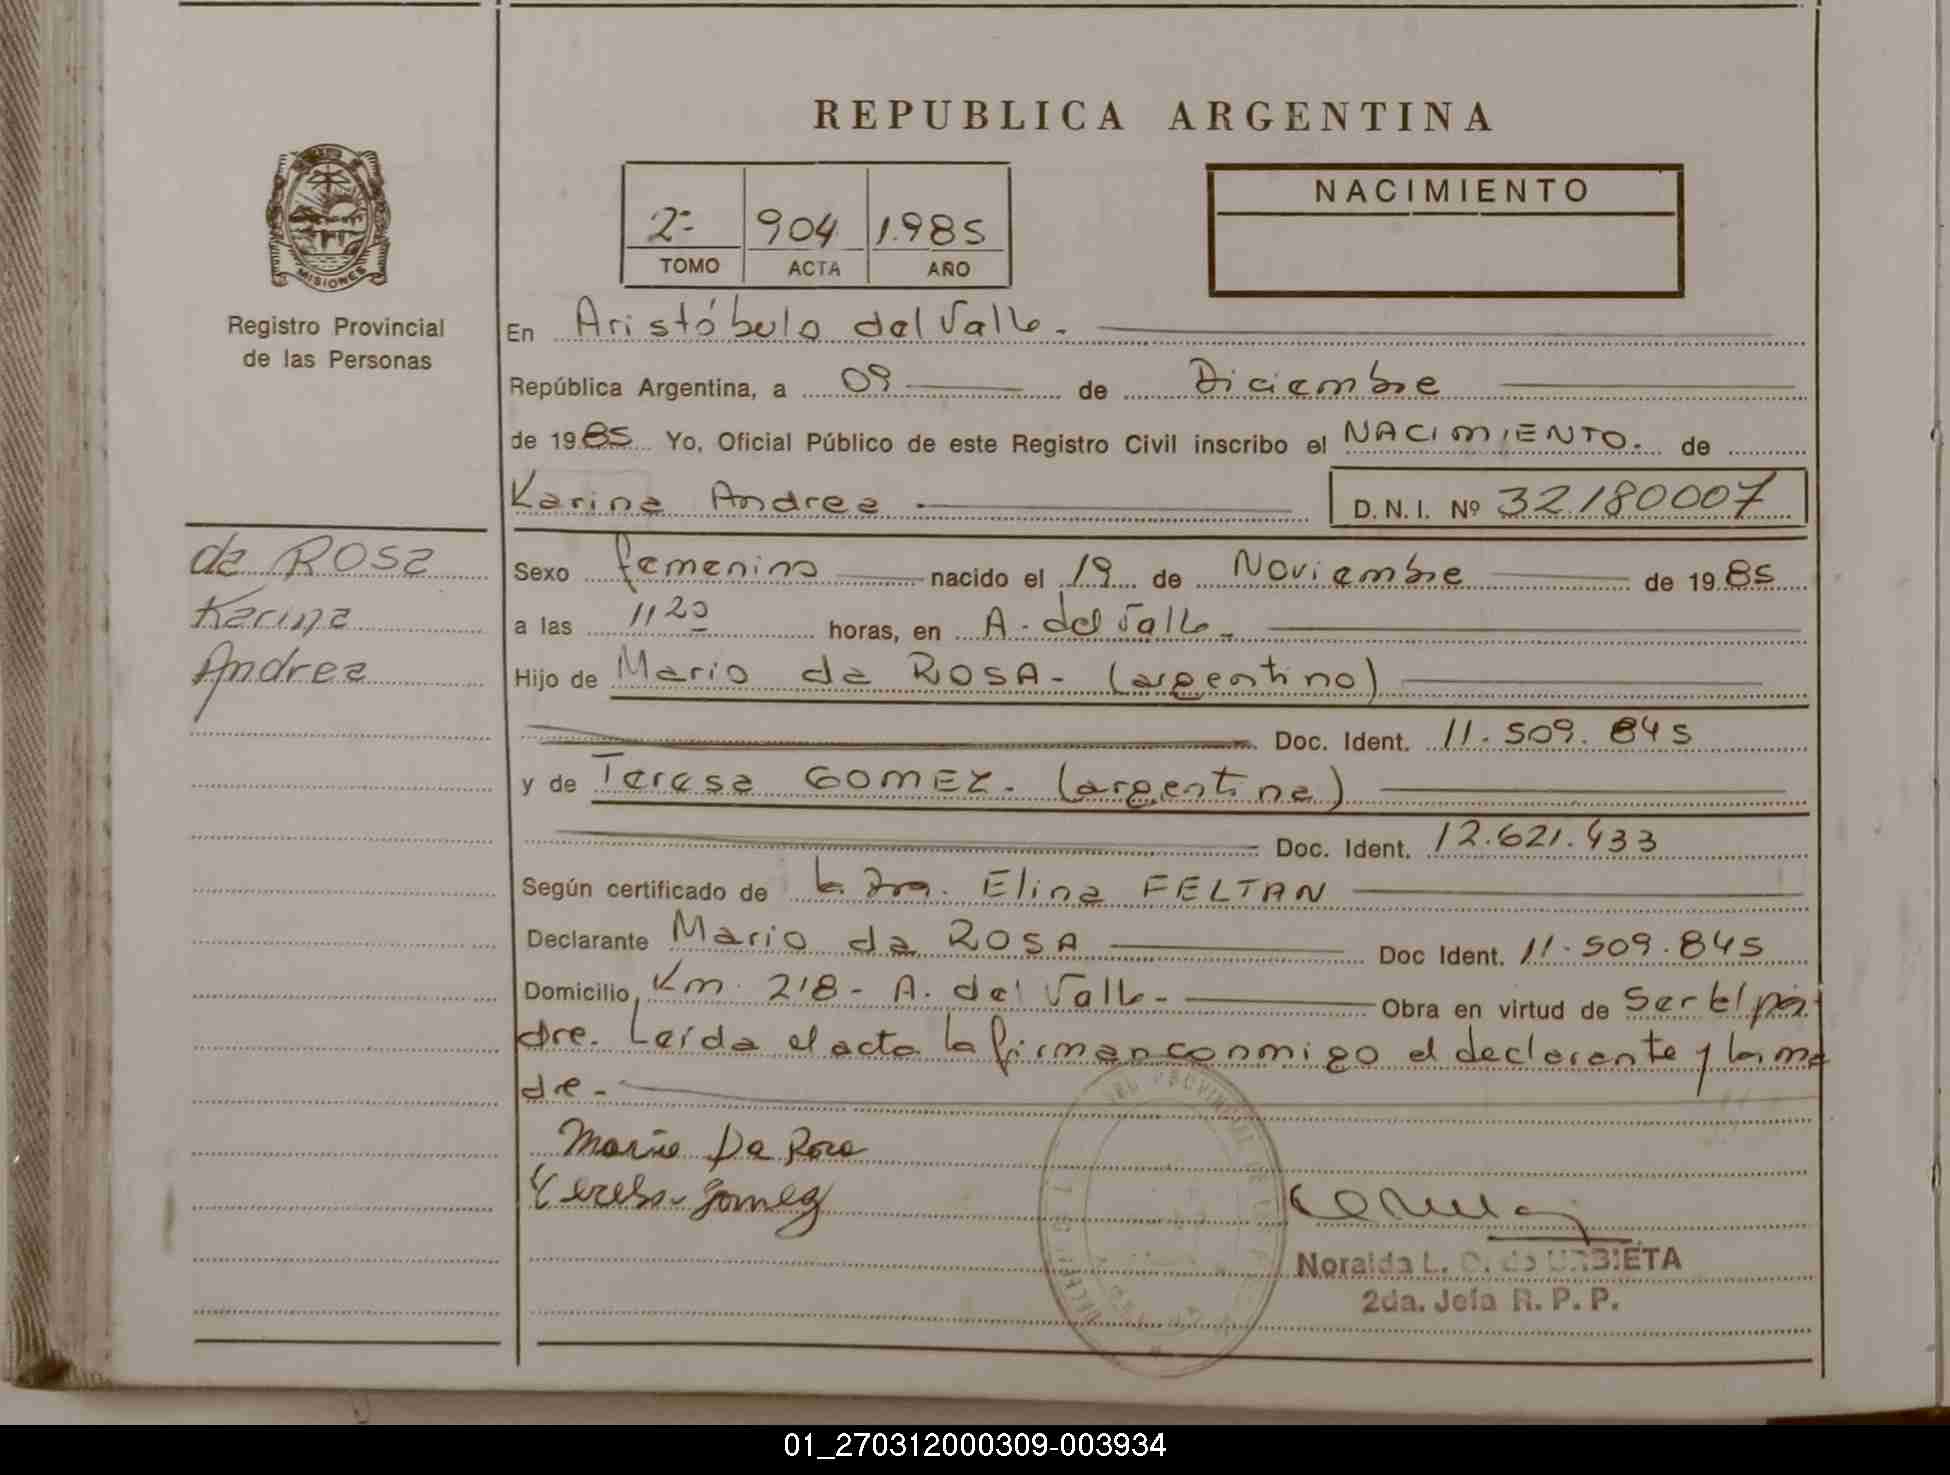 REPUBLICA ARGENTINA
NACIMIENTO
2º 904 1.985
TOMO ACTA AÑO
MISIONES
Registro Provincial
de las Personas
En Aristóbulo del Valle.
República Argentina, a 09 de Diciembre
de 1985 Yo, Oficial Público de este Registro Civil inscribo el NACIMIENTO. de
Karina Andrea D.N.I. Nº 32180007
da ROSA
Karina
Andrea
Sexo femenino nacido el 19 de Noviembre de 1985
a las 11 20 horas, en A. del Valle.
Hijo de Mario da ROSA - (argentino)
Doc. Ident. 11.509.845
y de Teresa GOMEZ. (argentina)
Doc. Ident. 12.621.433
Según certificado de la Dra. Elina FELTAN
Declarante Mario da ROSA Doc Ident. 11.509.845
Domicilio Km 218 - A. del Valle - Obra en virtud de Ser el pa
dre. Leída el acta la firman conmigo el declarante y la ma
dre -
Mario Da Rosa
Teresa Gomez
Noraida L. de URBIETA
2da. Jefa R. P. P.
01_270312000309-003934